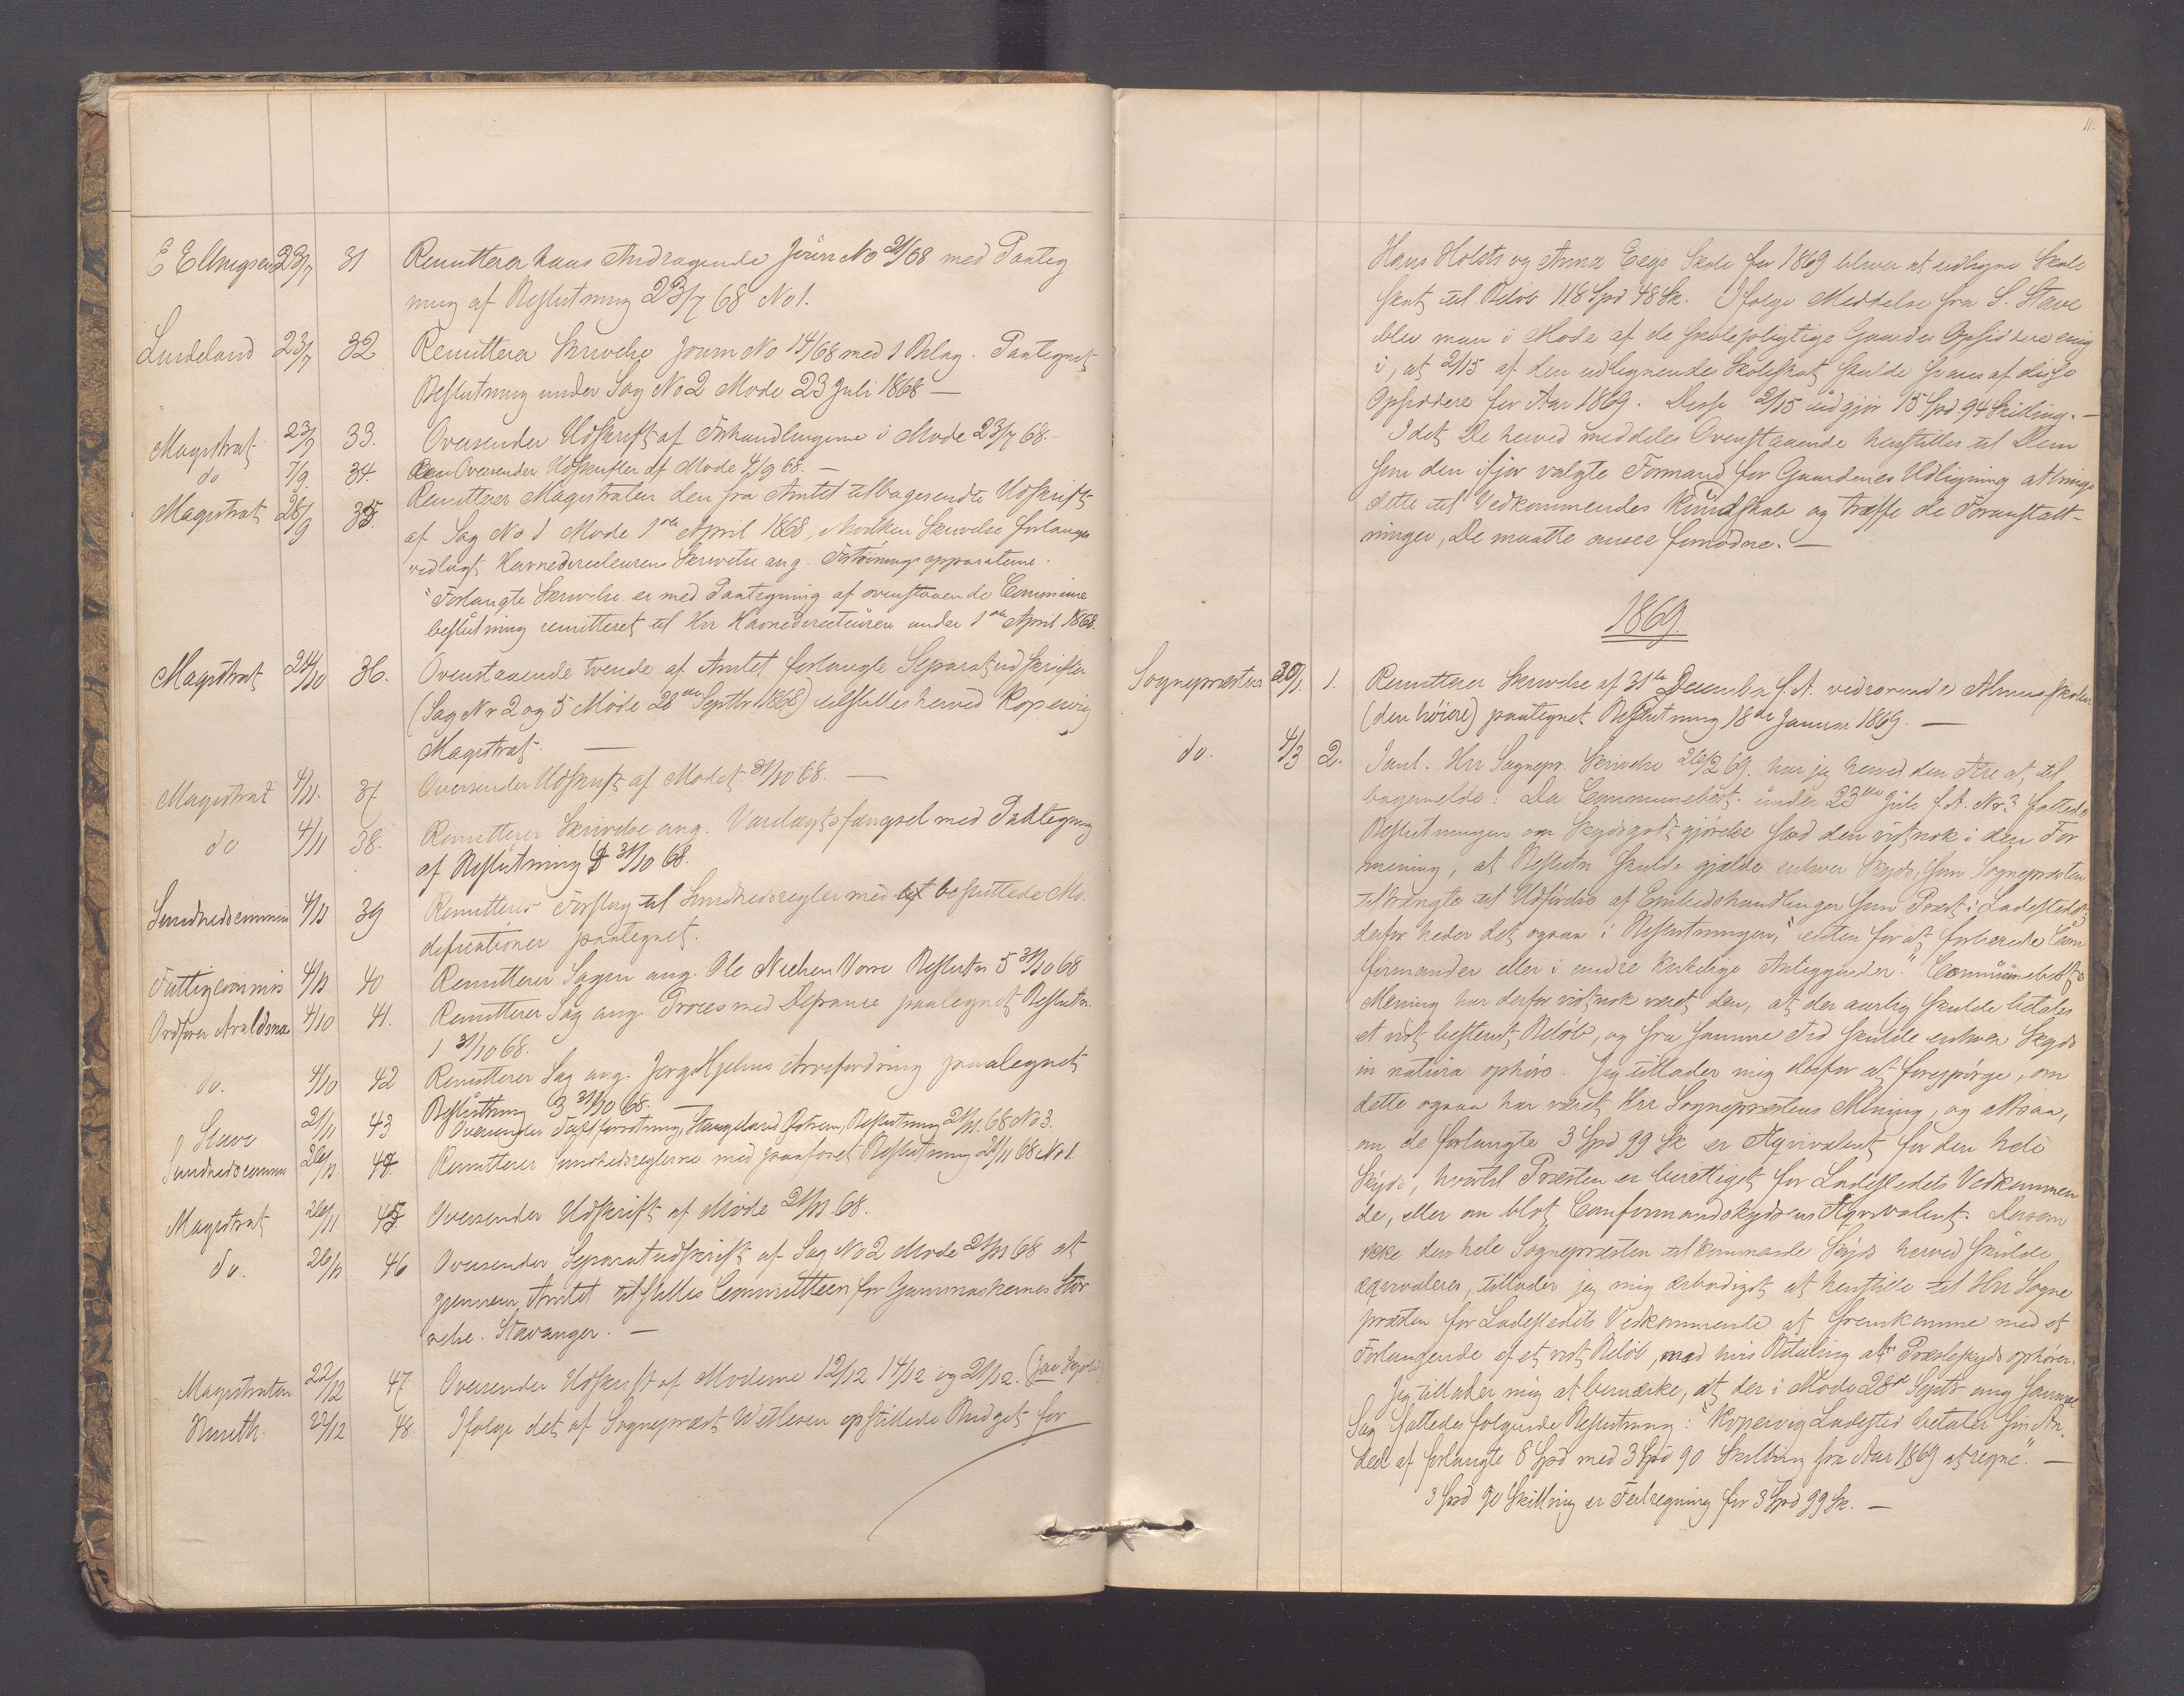 E Ellingsen 23/7 31 Remitterer hans Andragende Journ No 21/68 med Paateg
ning af Beslutning 23/7 68 No 1.
Lindeland 23/7 32 Remitterer Skrivelse Journ No 14/68 med 1 Bilag. Paategnet
Beslutning under Sag No 2 Møde 23 Juli 1868 —
Magistrat 23/7 33. Oversender Udskrift af Forhandlingerne i Møde 23/7 68.-
do 7/9. 34. Oversender Udskrifter af Møde 4/9 68. —
Magistrat 28/9 35. Remitterer Magistraten den fra Amtet tilbagesendte Udskrift
af Sag No 1 Møde 1ste April 1868, hvilken Skrivelse forlanges
vedlagt Havnedirecteurens Skrivelse ang. Fortøiningsapparaterne.
"Forlangte Skrivelse er med Paategning af ovenstaaende Commune
beslutning remitteret til Hrr Havnedirecteuren under 1ste April 1868.
Magistrat 24/10 36. Ovenstaaende tvende af Amtet forlangte Separatudskrifter
(Sag Nr 2 og 5 Møde 28de Septbr 1868) tilstilles herved Kopervig
Magistrat. —
Magistrat 4/11. 37 Oversender Udskrift af Mødet 31/10 68. —
do 4/11 38. Remitterer Skrivelse ang. Varetægtsfængsel med Paategning
af Beslutning 31/10 68.
Sundhedscommis 4/11 39 Remitterer Forslag til Sundhedsregler med besluttede Mo
difictioner paategnet.
Fattigcommis 4/11 40 Remitterer Sagen ang. Ole Nielsen Vorre Beslutn 5 31/10 68
Ordfører Avaldsnæs 4/10 41. Remitterer Sag ang. Proces med paategnet Beslutn.
1 31/10 68.
do. 4/10 42 Remitterer Sag ang. Jørg Hjelms paategnet
Beslutning 3 31/10 68. —
J Stave 21/11 43 Oversender Stangeland Østrem, Beslutning 21/11. 68 No 3.
Sundhedscommis 26/11. 44. Remitterer Sundhedsreglerne med paaført Beslutning 21/11 68 No 1.
Magistrat 26/11 45. Oversender Udskrift af Møde 21/11. 68.
do. 26/11 46 Oversender Separatudskrift af Sag No 2 Møde 21/11 68 at
gjennem Amtet tilstilles Committeen for Gammaskernes Stør
relse. Stavanger. —
Magistraten 22/12 47 Oversender Udskrift af Møderne 12/12 14/12 og 21/12.
22/12 48. Ifølge det af Sognepræst Wetlesen opstillede Budget for
11.
Hans Holsts og Anna Eegs Skole for 1869 bliver at udligne Skole
skat til Beløb 118 Spd 48 Sk. Ifølge Meddelse fra S. Stave
blev man i Møde af de skolepligtige Gaardes Opsiddere enig
i, at 2/15 af den udlignende Skoleskat skulde svares af disse
Opsiddere for Aar 1869. Disse 2/15 udgjør 15 Spd. 94 Skilling. —
Idet De herved meddeles Ovenstaaende henstilles til Dem
som den ifjor valgte Formand for Gaardenes Udligning at bringe
dette til Vedkommendes Kundskab og træffe de Foranstalt-
ninger, De maatte ansee fornødne. —
1869.
Sognepræsten 30/1. 1. Remitterer Skrivelse af 31te December f. A. vedrørende Almueskolen
(den høiere) paategnet Beslutning 18de Januar 1869. —
do. 4/3 2. Hrr Sognepr. Skrivelse 26/2 69. har jeg herved den Ære at til
bagemelde: Da Communebest. under 23de Juli f. A. Nr 3 fattede
Beslutningen om Skydsgodtgjørelse stod den vistnok i den For
mening, at Beslutn skulde gjælde enhver Skyds, som Sognepræsten
tiltrængte til Udførelse af Embedshandlinger som Præst i Ladestedet,
derfor heder det ogsaa i Beslutningen, "enten for at forberede Con
firmander eller i andre kirkelige Anliggender." Communebests
Mening har derfor vistnok været den, at der aarlig skulde betales
et vist bestemt Beløb, og fra samme Tid skulde enhver Skyds
in natura ophøre. Jeg tillader mig derfor at forespørge, om
dette ogsaa har været Hrr Sognepræstens Mening, og altsaa,
om de forlangte 3 Spd 99 Sk er Æqvivalent for den hele
Skyds, hvortil Præsten er berettiget for Ladestedets Vedkommen
de, eller om blot Confirmandskydsens Æqvivalent. Dersom
ikke den hele Sognepræsten tilkommende Skyds herved skulde
æqvivaleres, tillader jeg mig ærbødigst at henstille til Hrr Sogne
præsten for Ladestedets Vedkommende at fremkomme med et
Forlangende af et vist Beløb, med hvis Betaling al Præsteskyds ophører.
Jeg tillader mig at bemærke, at der i Møde 28de Septr ang samme
Sag fattedes følgende Beslutning: "Kopervig Ladested betaler sin An
deel af forlangte 8 Spd med 3 Spd 90 Skilling fra Aar 1869 at regne". —
3 Spd 90 Skilling er Feilregning for 3 Spd 99 Sk. —